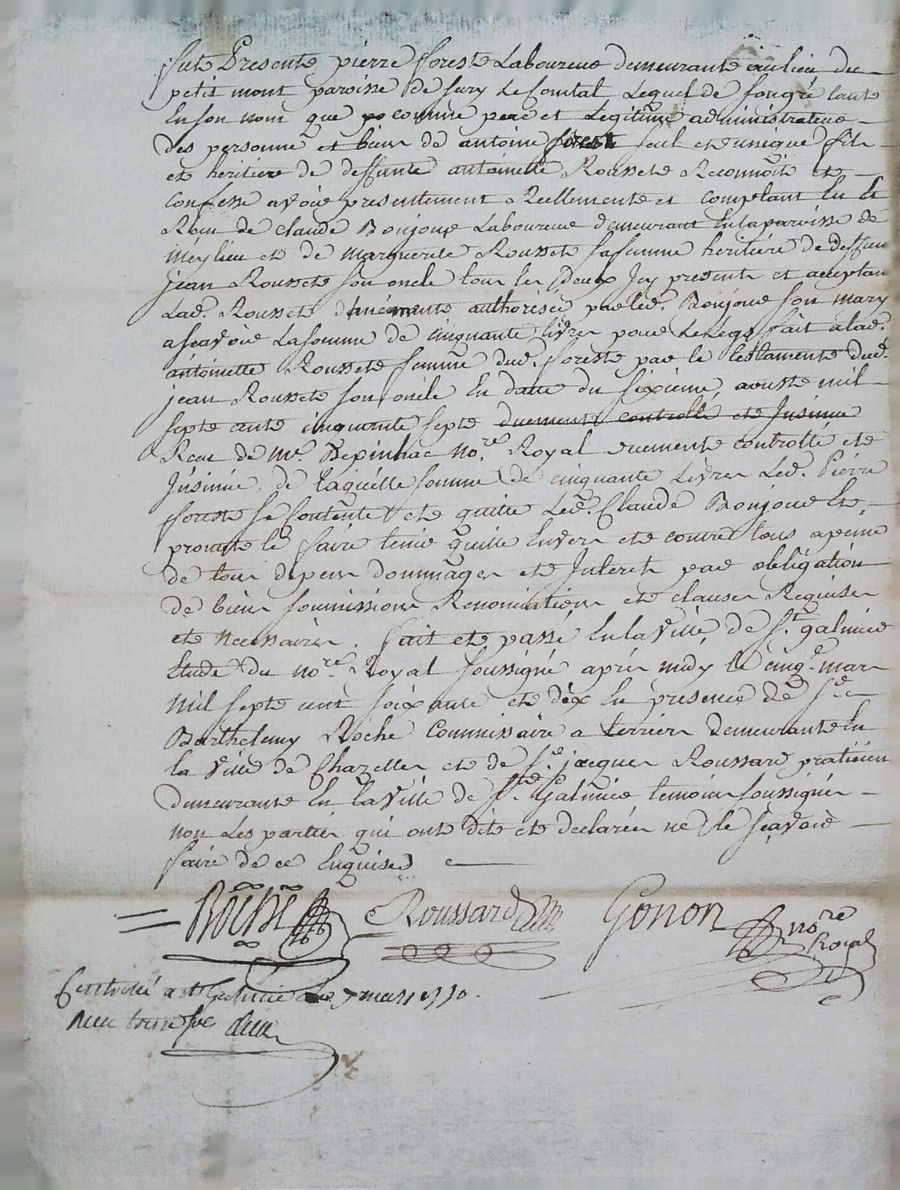 fute Presente pierre foreste Laboureue demeurante au lieu du
petit mont paroisse de Sury Le Comtal Lequel de son gré tante
En son nom que po comme pere et Legitime administrateue
des personne et biens de antoine forest seul et unique fils
et heritiere de deffunte antoinette Roussete Reconnoit et
Confesse avoie presentement Reellemente et comptant Eu et
Receu de claude Bonjoue Laboureue demeurant En la paroisse de
meylieu et de marguerite Roussete sa femme heritiere de deffun
jean Roussete son oncle tous les Deux Icy presents et acceptan
Lad. Roussete authorisée pae led. Bonjoue son mary
a scavoie La somme de cinquante livres poue Le Legs fait a lad.
antoinette Roussete femme dud. foreste pae le testamente dud.
jean Roussete son oncle En datte du sixieme aouste mil
septe cents cinquante septe duement controllé ete Insinué
Receu de me. Depinhac no.re Royal duemente controllé ete
Insinué, de laquelle somme de cinquante Livres Led. Pierre
foreste se Contente ete quitte Led. Claude Bonjoue Ete
promete le faire tenie quitte Envers ete contre tous a peine
de tous depens dommages ete Interets pae obligation
de biens soumissions Renonciations ete clauses Requises
ete necessaires. fait ete passé En la ville de St. galmiee
Etude du no.re Royal soussigné apres midy le cinq.e mars
mil septe cents soixante ete dix En presence de s.r
Barthelemy Roche Commissaire a terriers demeurante En
la ville de Chazelles ete de s.r jacques Roussard praticien
demeurante En la ville de St. Galmiee temoins soussignés
non Les parties qui onte dite ete declarée ne le scavoie
faire de ce Enquises
Roche Roussard Gonon no.re
Royal
Controlé a St Galmie le 7 mars 1770.
Receu